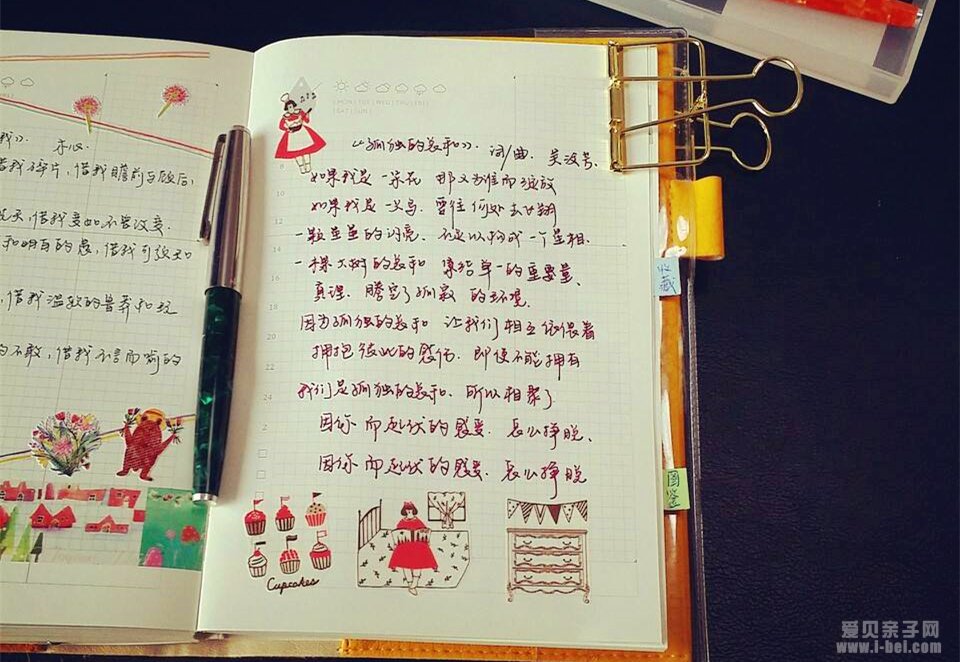 我》. 木心
借我碎片,借我瞻前与顾后,
借我变如不曾改变.
借我可
借我温软的鲁莽和
的不敢,借我不言而喻的
MON TUE WED THU FRI
SAT SUN
《孤独的总和》. 词/曲. 吴汶芳.
如果我是一朵花 那又为谁而绽放
如果我是一只鸟. 要往何处去飞翔
一颗星星的闪亮. 不足以构成一个星相.
一棵大树的总和 集结单一的重要量、
真理. 腾空了孤寂 的环境.
因为孤独的总和 让我们相互依偎着
拥抱彼此的感伤. 即使不能拥有
我们是孤独的总和. 所以相聚了
因你 而起伏的感受. 怎么挣脱、
因你 而起伏的感受. 怎么挣脱
Cupcakes
收藏
图鉴
爱贝亲子网
www.i-bei.com